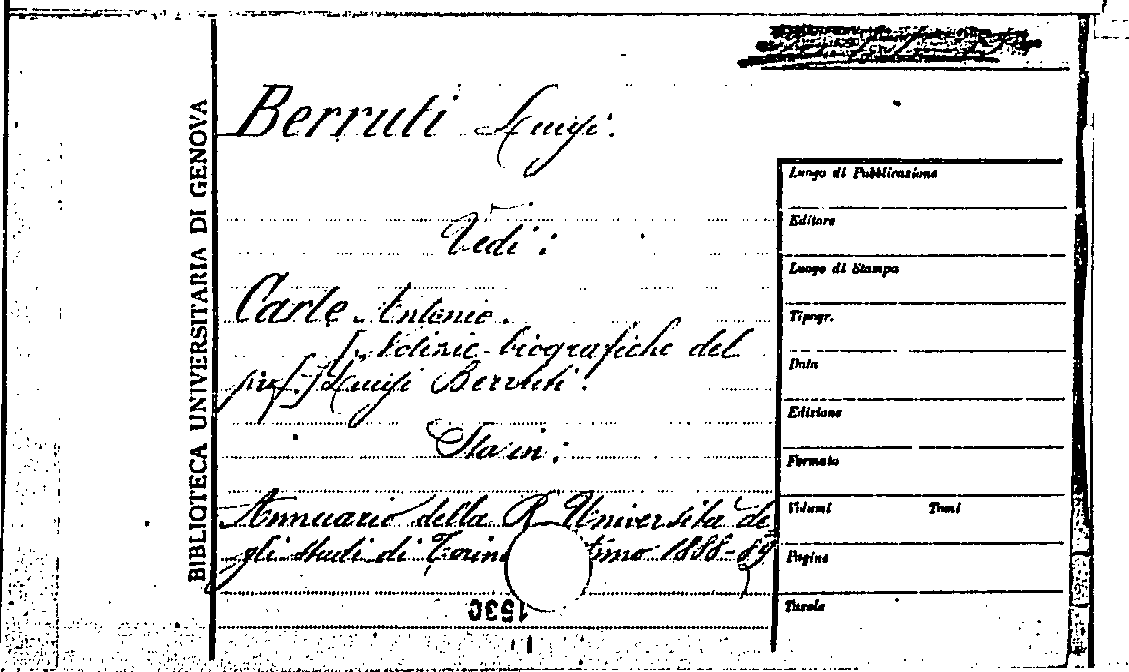 BIBLIOTECA UNIVERSITARIA DI GENOVA
Berruti Luigi.
Vedi:
Carle Antonio.
[Notizie biografiche del
prof.] Luigi Berruti.
Sta in:
Annuario della R. Università de
gli studi di Torino 1888-89
1530
Luogo di Pubblicazione
Editore
Luogo di Stampa
Tipogr.
Data
Edizione
Formato
Volumi Tomi
Pagine
Tavole